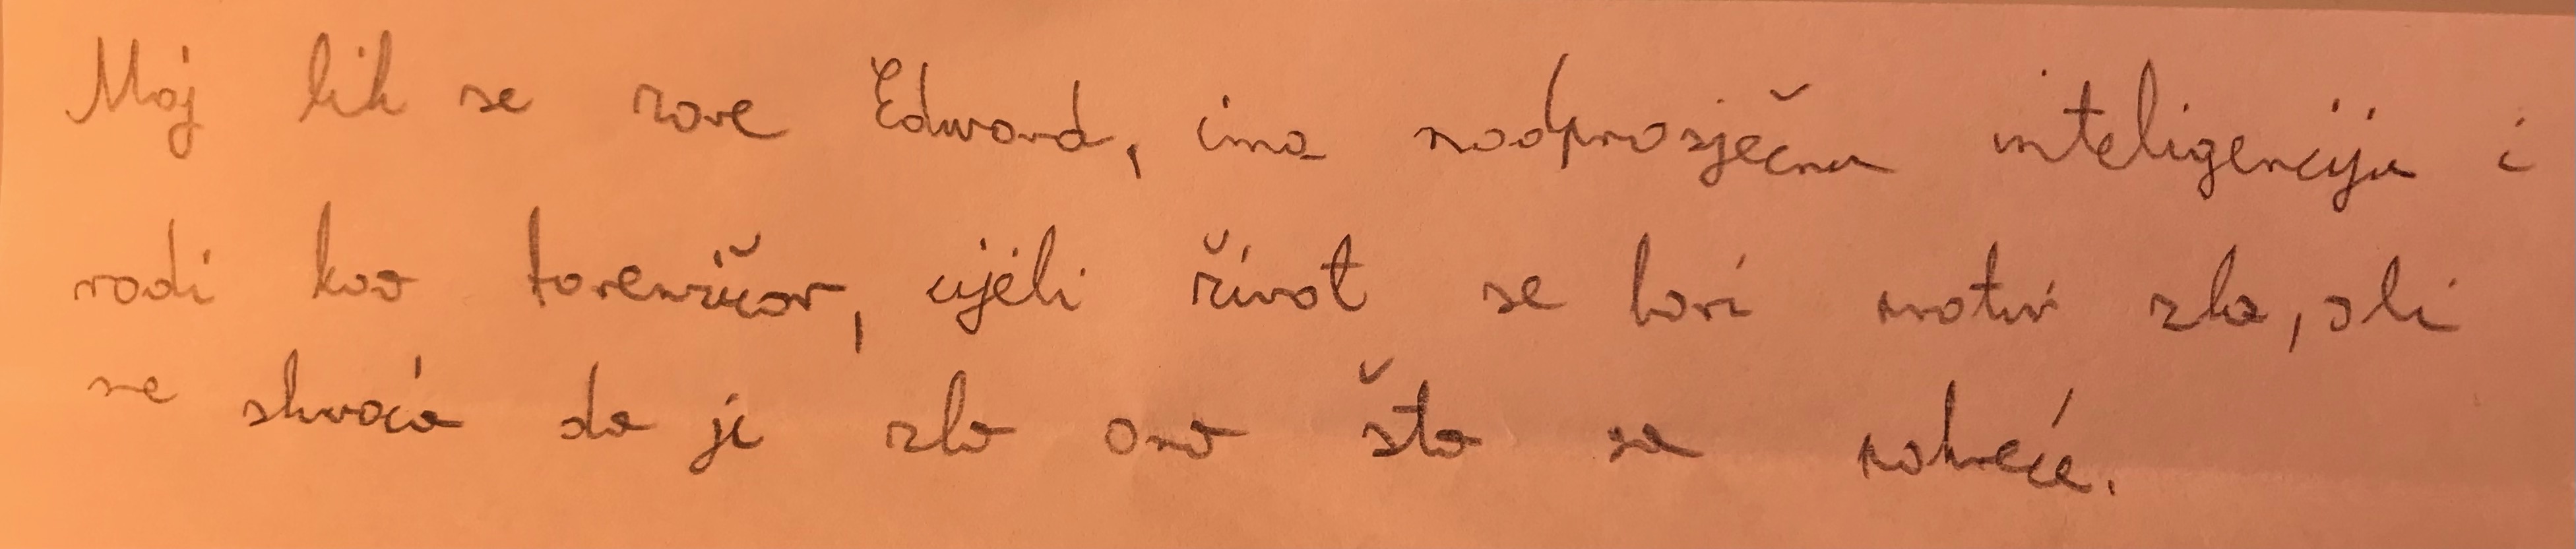 Moj lik se zove Edward, ima nadprosječnu inteligenciju i
radi kao forenzičar, cijeli život se bori protiv zla, ali
ne shvaća da je zlo ono što ga pokreće.